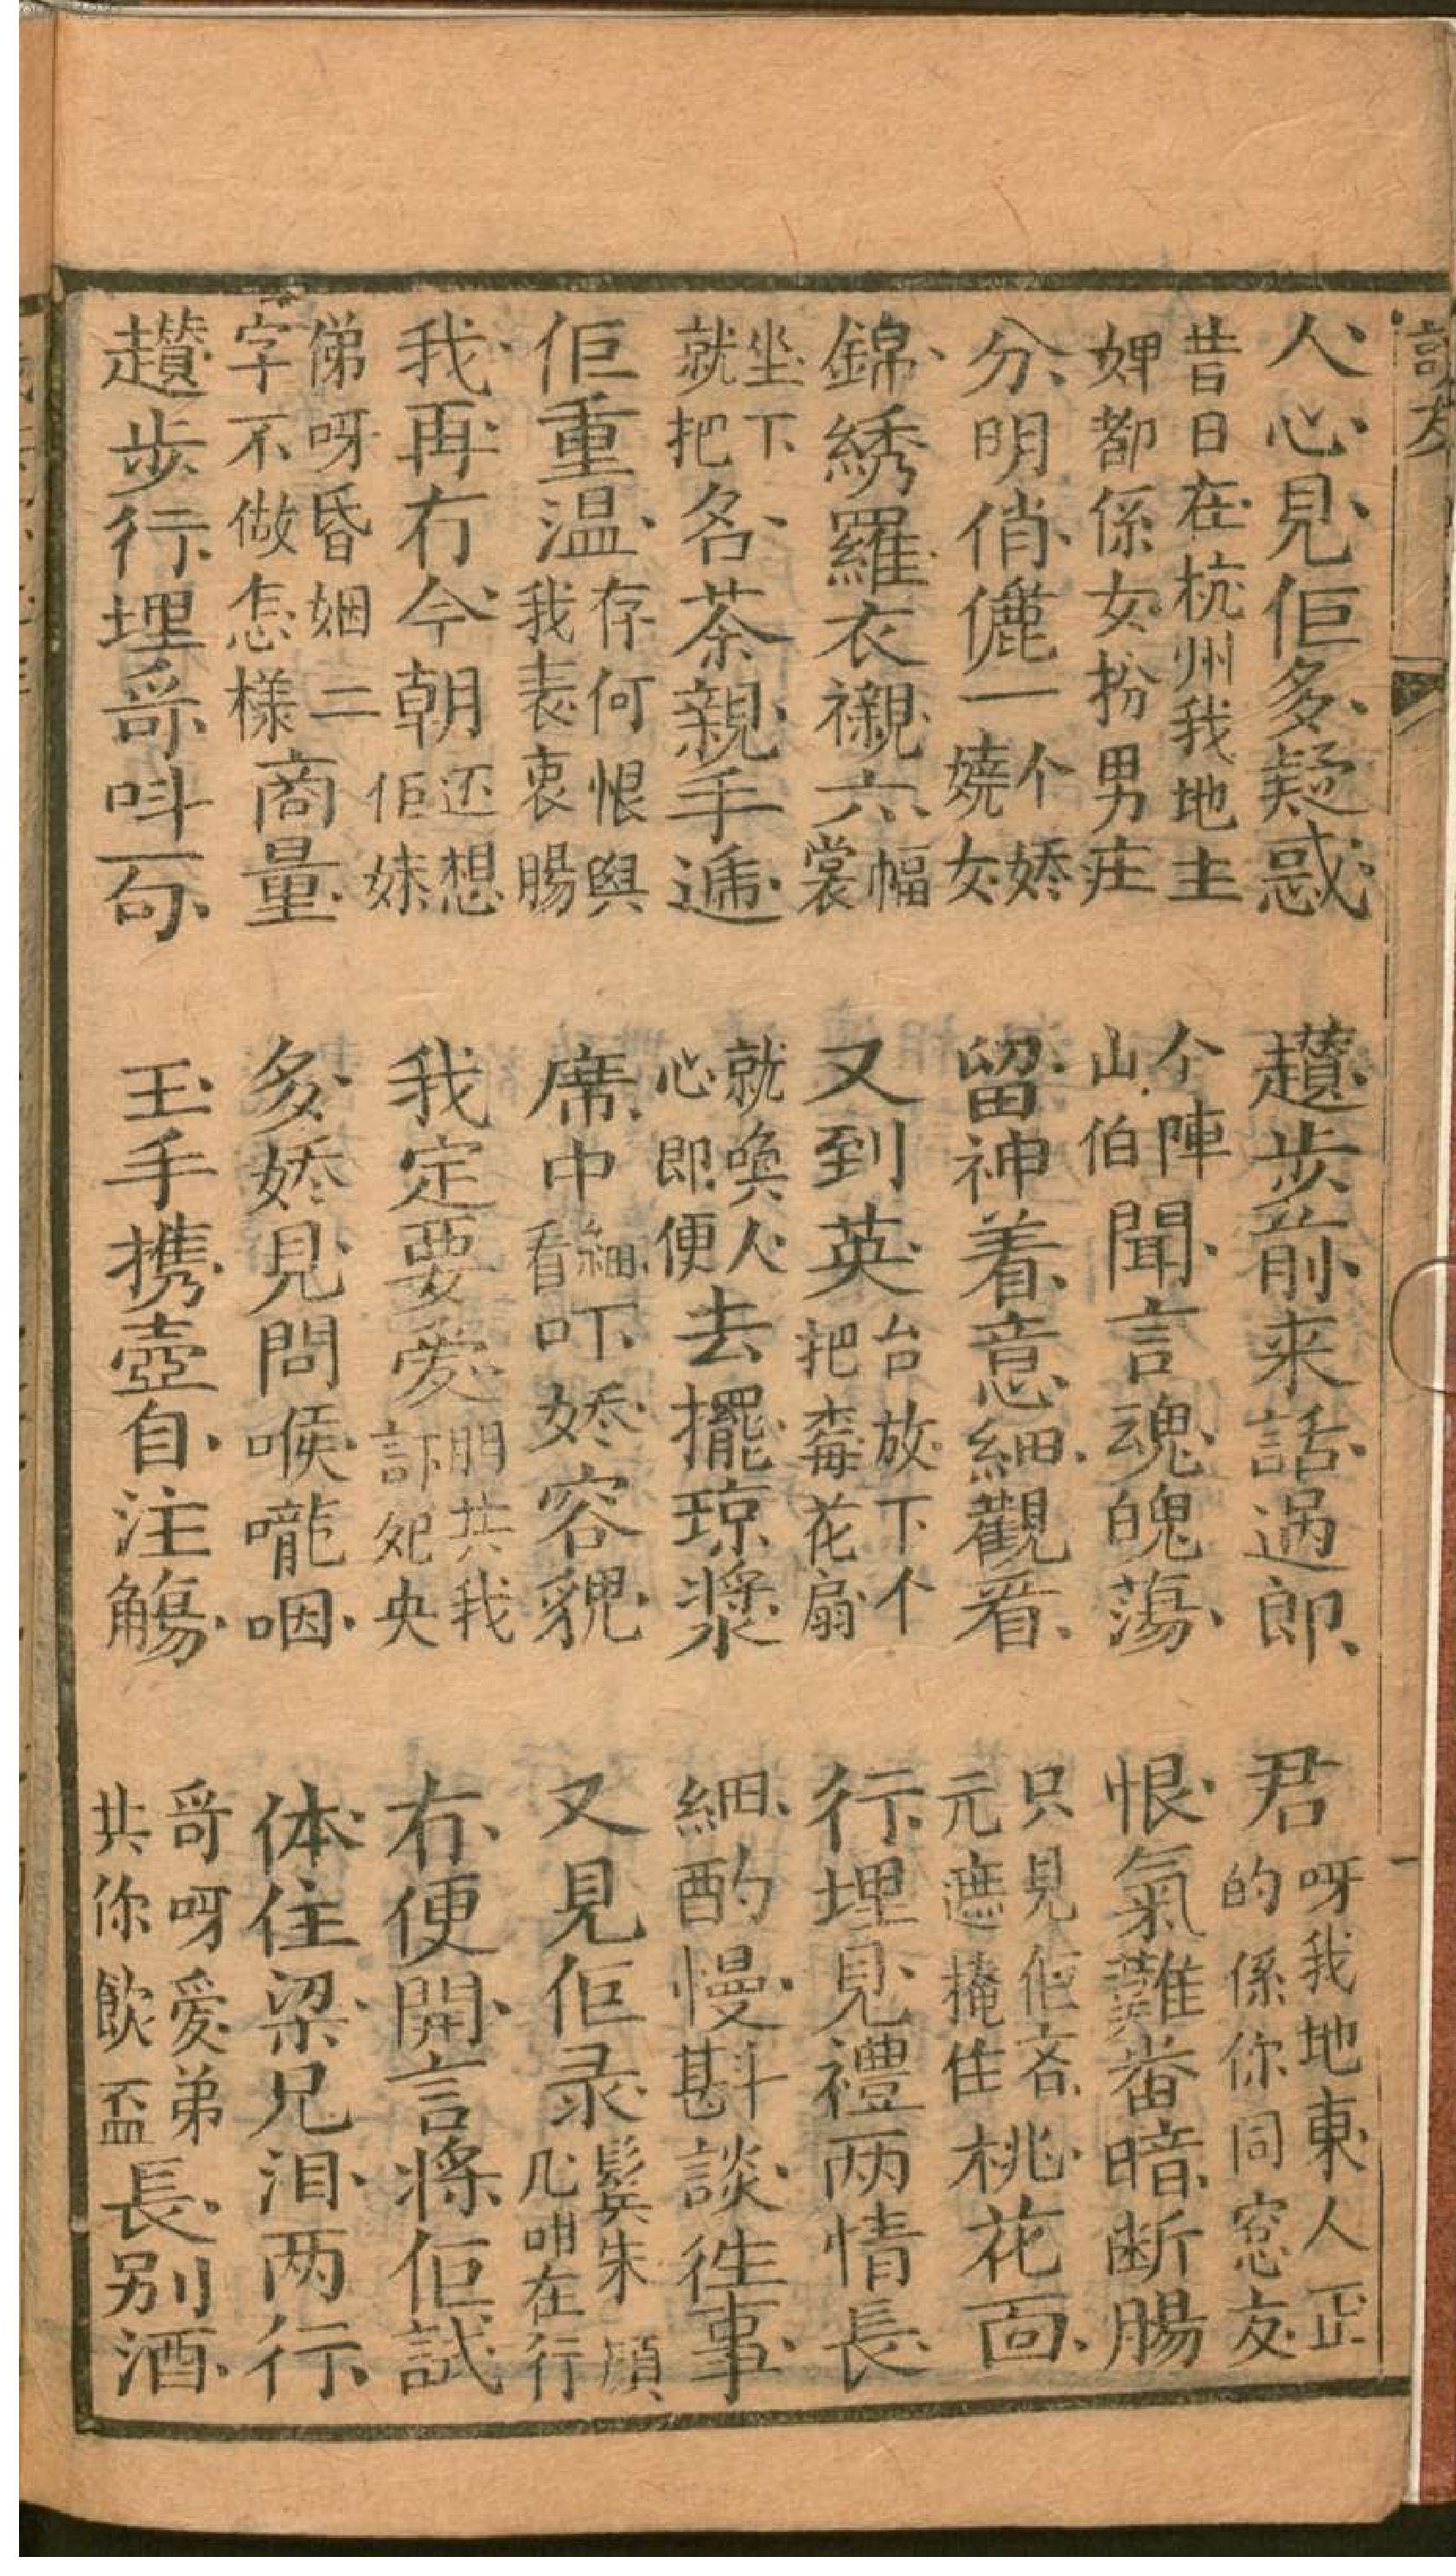 訪友
一
人心見佢多疑惑
趲步前来話過郎
君呀我地東人正的係你同窓友
昔日在杭州我地主婢都係女扮男庄
个陣山伯聞言魂魄蕩
恨氣難番暗断腸
分明俏儷一个娇嬈女
留神着意細觀看
只見佢吝元遮掩住桃花面
錦綉羅衣襯六幅裳
又到英台放下个把莓花扇
行埋見禮两情長
坐下就把名茶親手遞
就喚人心即便去擺琼漿
細酌慢斟談徃事
佢重温存何恨與我表衷腸
席中細看吓娇容貌
又見佢彔鬂朱顔几咁在行
我再冇今朝还想佢妹
我定要愛門共我訂妃央
冇便開言將佢試
悌呀昏姻二字不做怎樣商量
多娇見問喉嚨咽
体住梁兄泪两行
趲步行埋哥呌一句
玉手携壺自注觴
哥呀愛弟共你飲盃長别酒